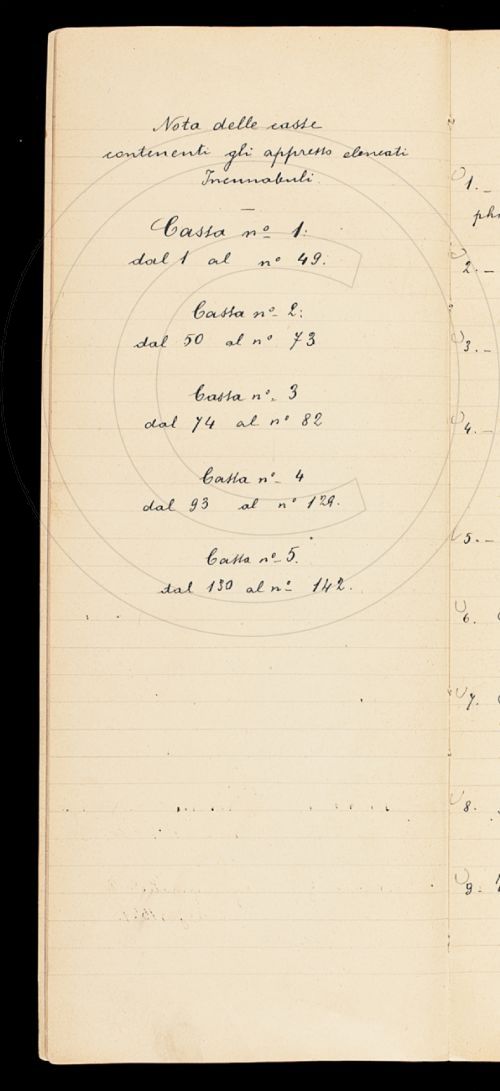 Nota delle casse
contenenti gli appresso elencati
Incunnabuli.
Cassa nº 1:
dal 1 al nº 49.
Cassa nº 2:
dal 50 al nº 73
Cassa nº 3
dal 74 al nº 82
Cassa nº 4
dal 93 al nº 129.
Cassa nº 5.
dal 130 al nº 142.
1. _
2. _
3. _
4. _
5. _
6.
7.
8.
9.